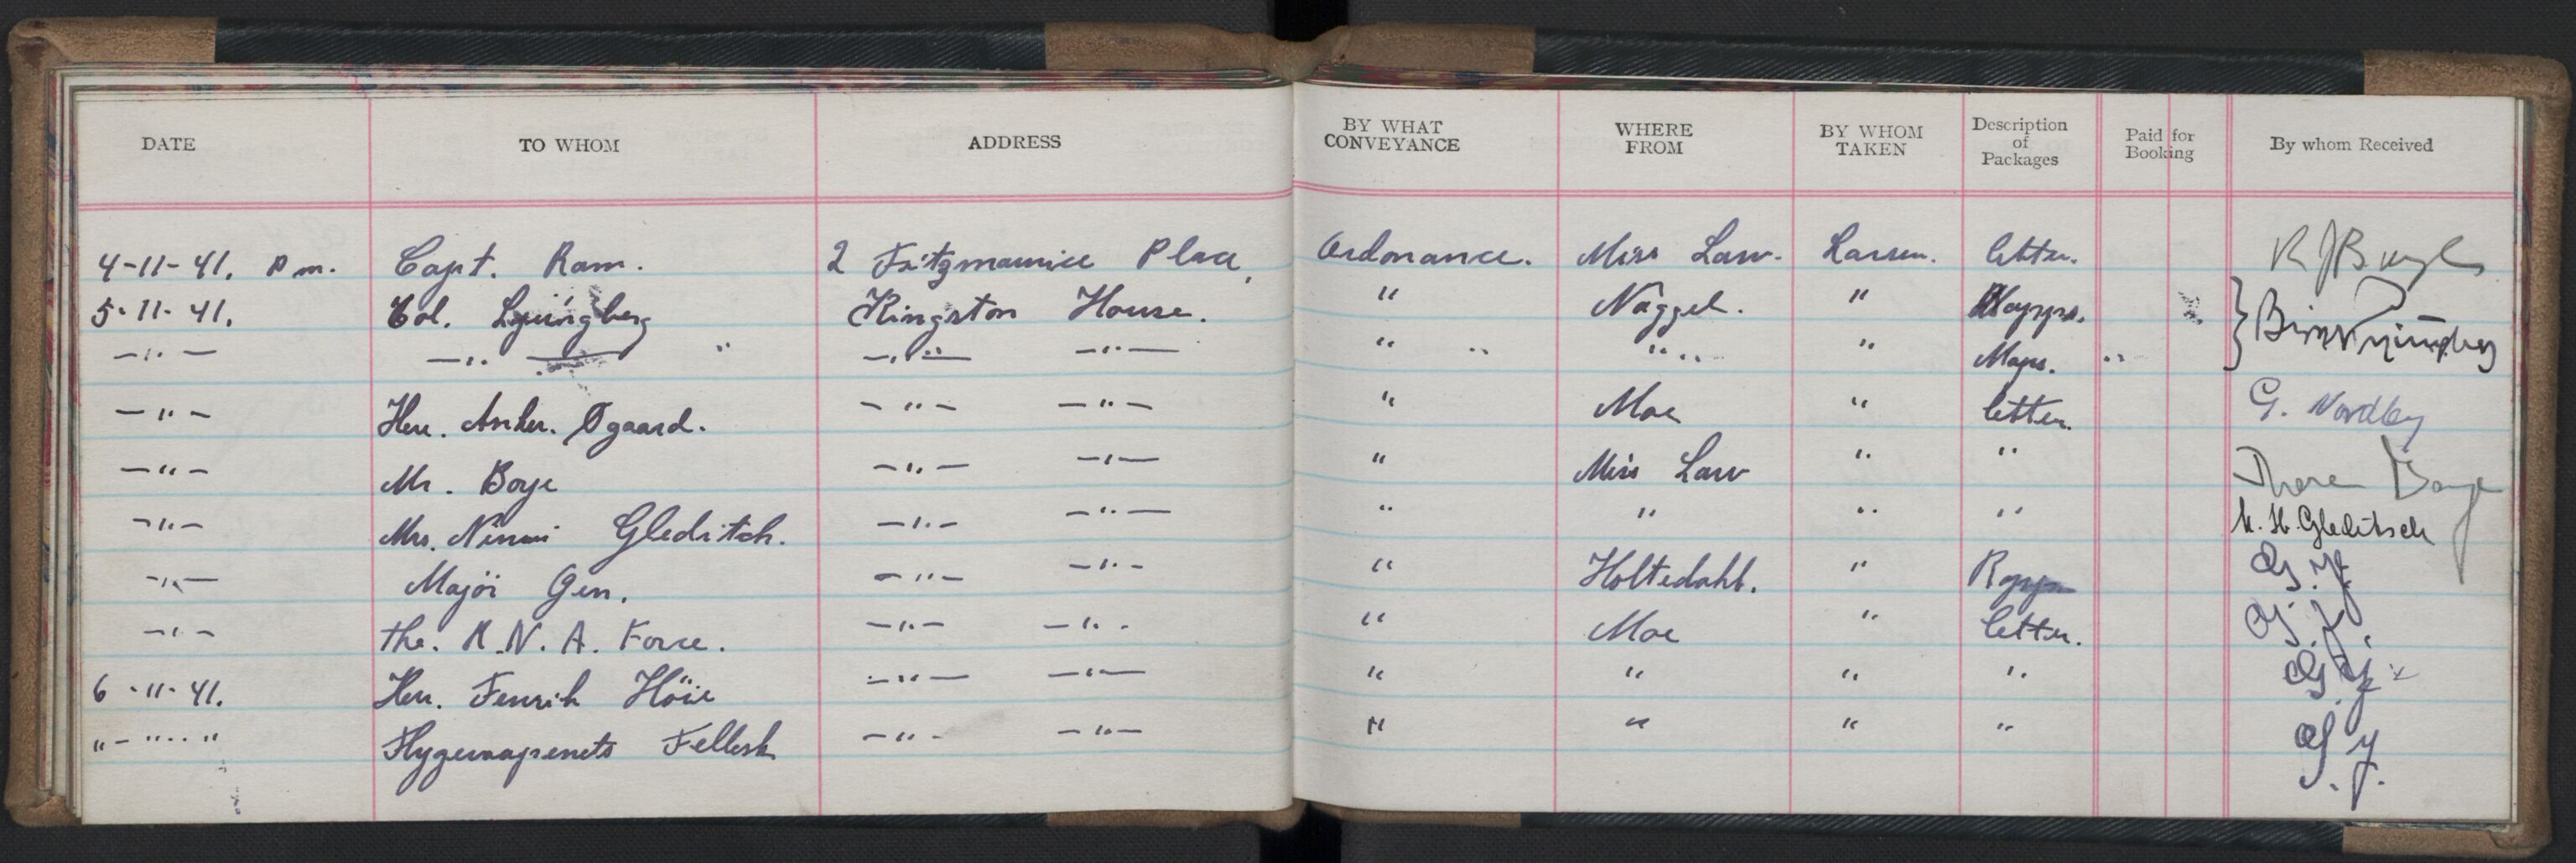 DATE TO WHOM ADDRESS BY WHAT CONVEYANCE WHERE FROM BY WHOM TAKEN Description of Packages Paid for Booking By whom Received
4-11-41. p m. Capt. Ram. 2 Fitzmaurice Place, Ordonance. Miss Law. Larsen. letter.
5-11-41. Col. Ljungberg Kingston House. " Naggel. "
—"— —"— " —"— —"— " " " Maps. "
—"— Herr. Anker. Øgaard. —"— —"— " Moe " letter. G. Nordby
—"— Mr. Boye —"— —"— " Miss Law " " Thore Boye
—"— Mrs. Ninni Gleditch. —"— —"— " " " " N. H. Gleditsch
—"— Major Gen. —"— —"— " Holtedahl. "
—"— the. R.N.A. Force. —"— —"— " Moe " letter.
6-11-41. Herr. Fenrik Höie —"— —"— " " " "
"-"-" Flygevaapenets Fellesk —"— —"— " " " "